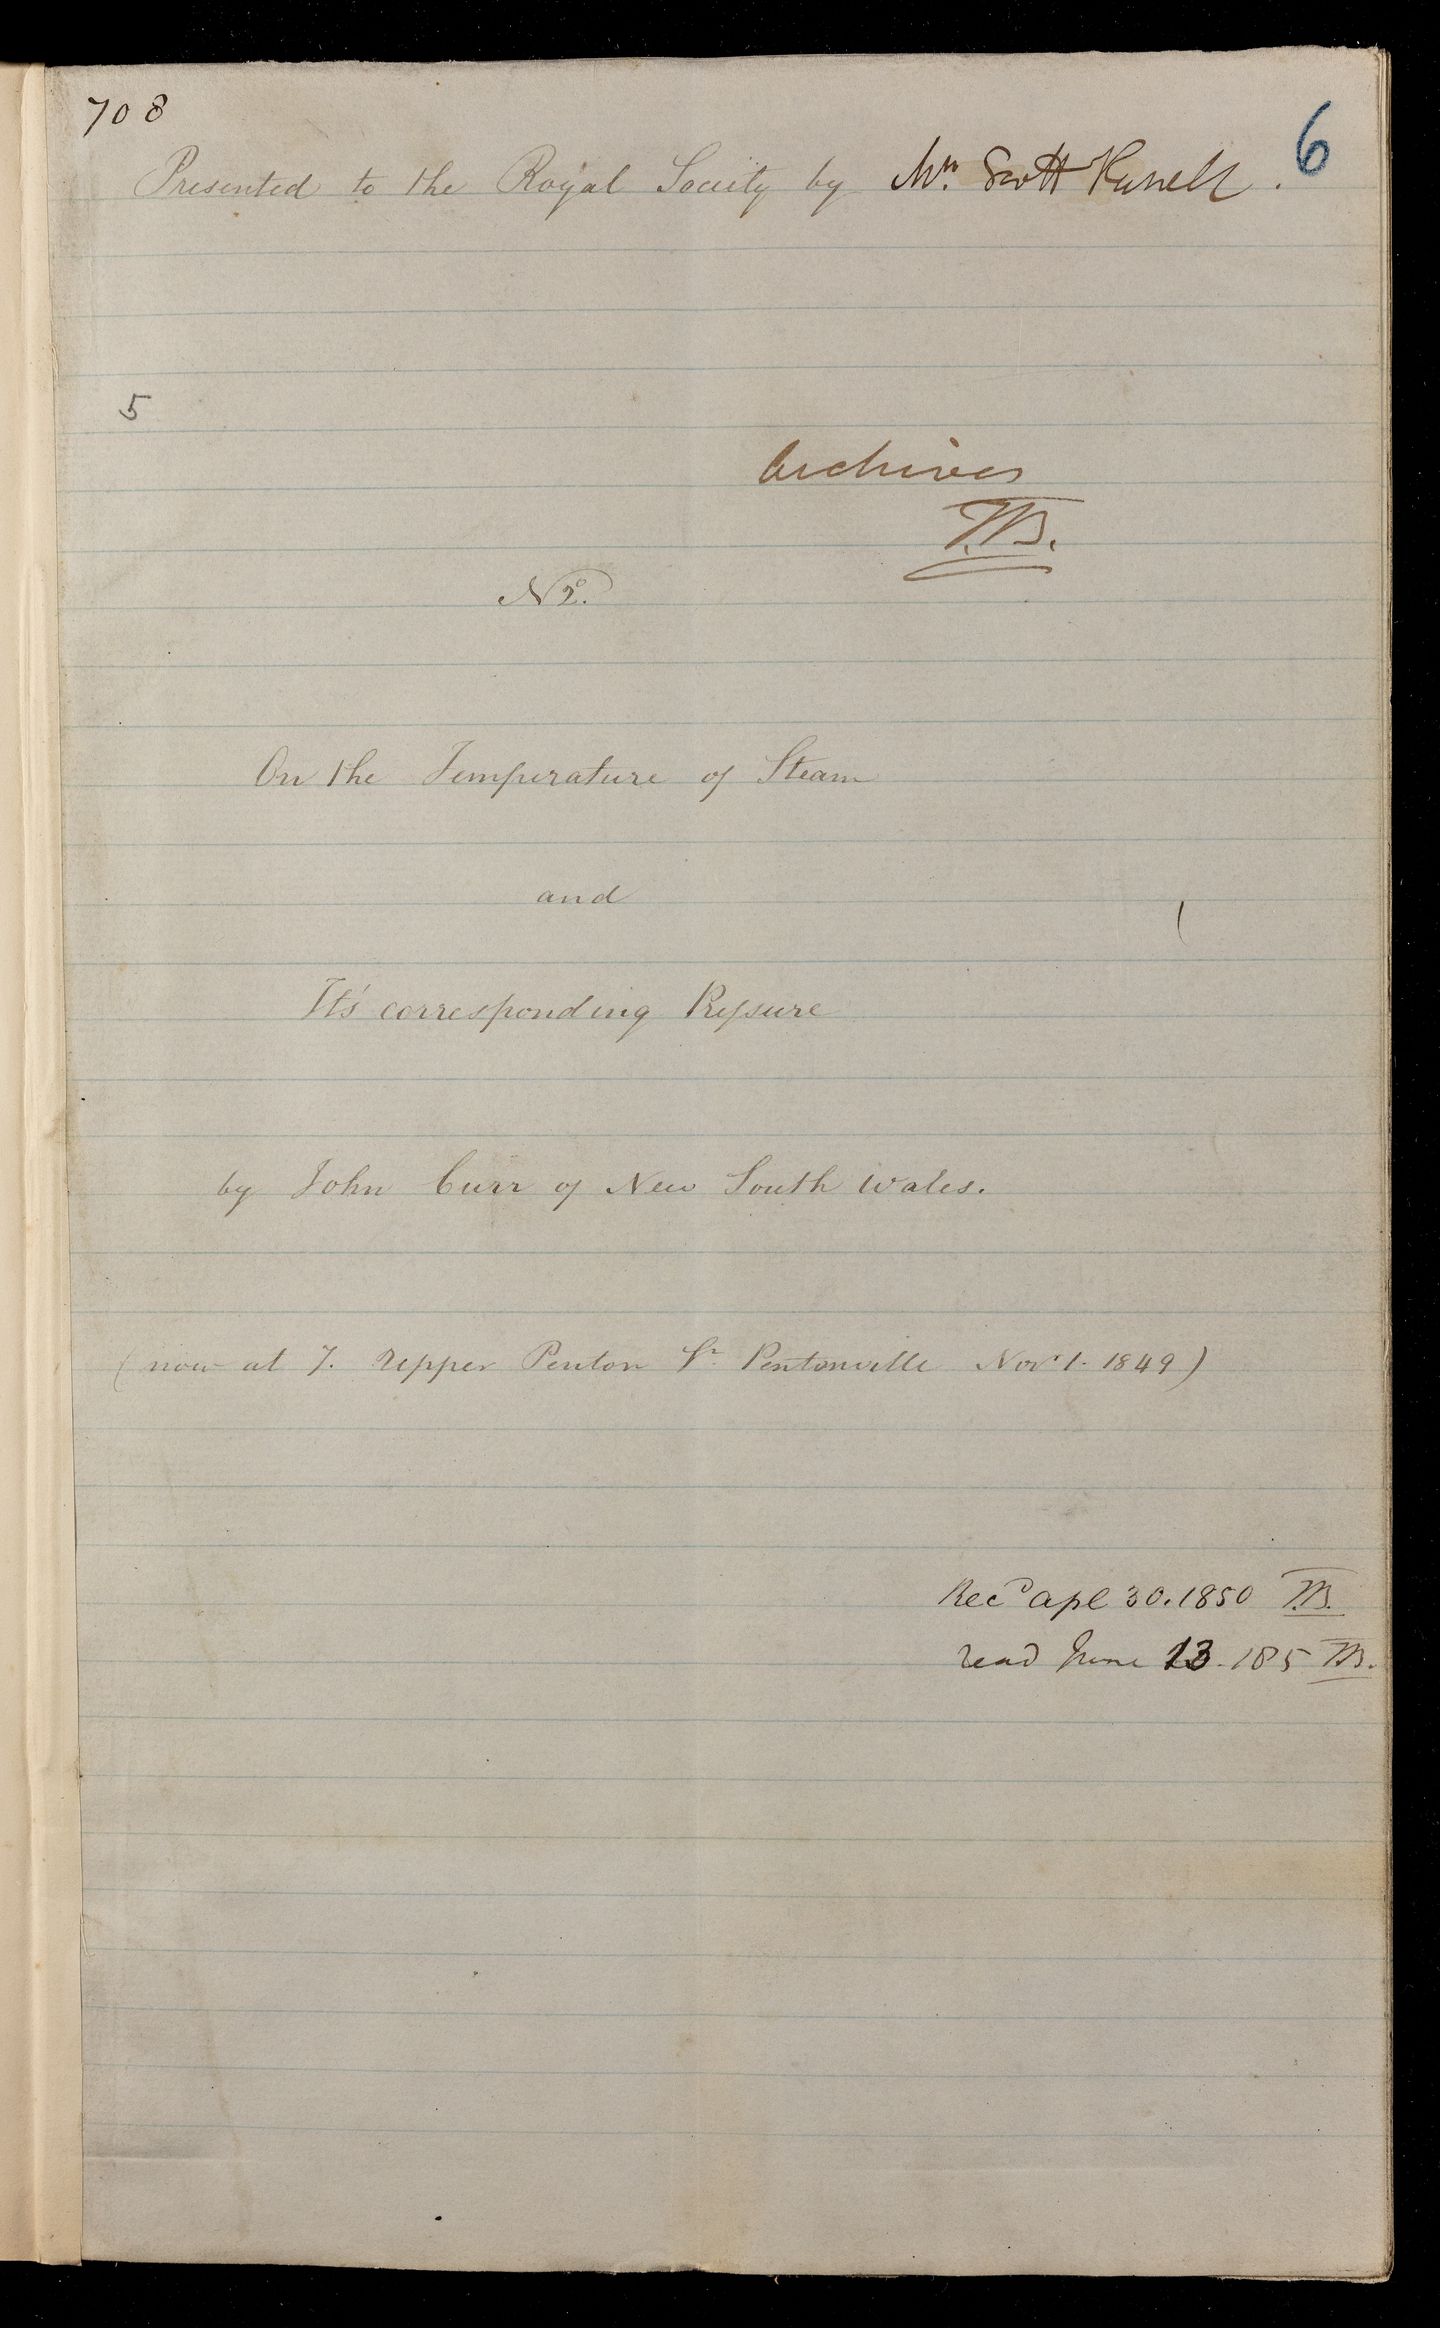 708
6
Presented to the Royal Society by Mr. Scott Russell.
5
Archives
T.B.
No.
On the Temperature of Steam
and
It's corresponding Pressure
by John Curr of New South Wales.
(now at 7. Upper Penton St. Pentonville Novr 1. 1849)
Recd Apl 30. 1850 T.B.
read June 13. 185 T.B.